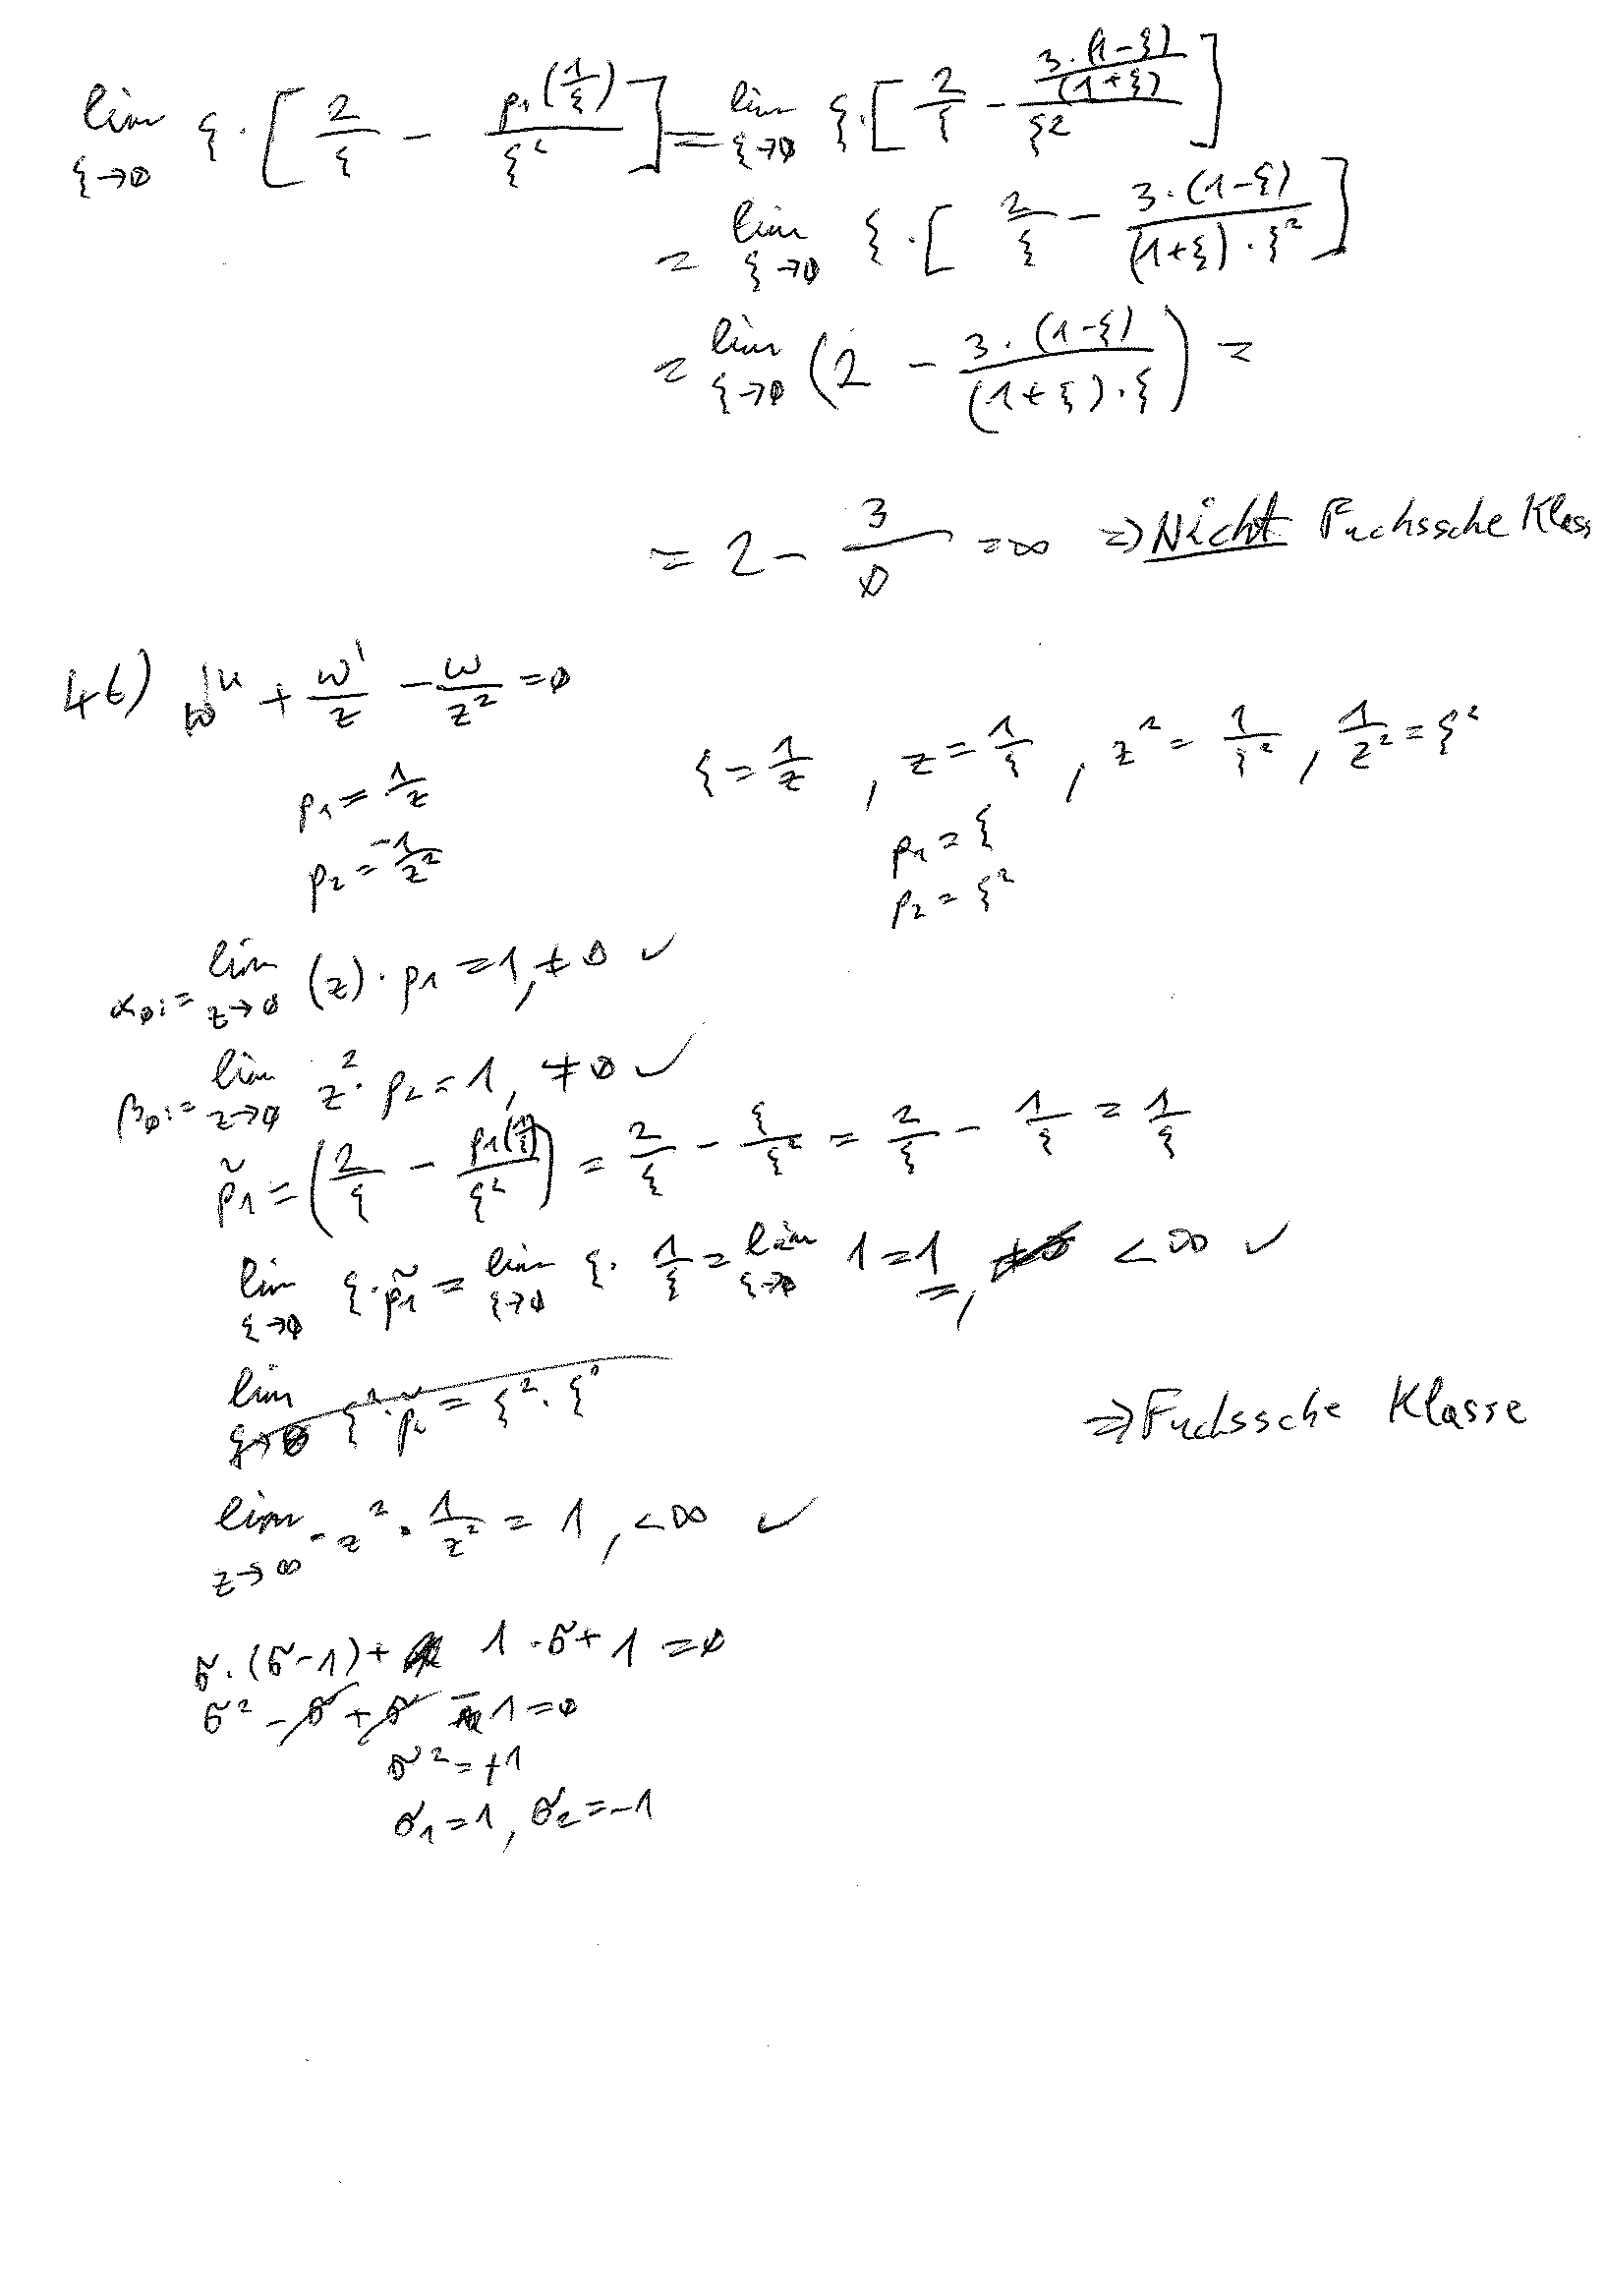 lim ξ→0 ξ · [ 2/ξ − p₁(1/ξ)/ξ² ] = lim ξ→0 ξ · [ 2/ξ − (3·(1−ξ)/(1+ξ))/ξ² ]
= lim ξ→0 ξ · [ 2/ξ − 3·(1−ξ)/((1+ξ)·ξ²) ]
= lim ξ→0 ( 2 − 3·(1−ξ)/((1+ξ)·ξ) ) =
= 2 − 3/0 = ∞ ⇒ Nicht Fuchssche Klass
4b) w'' + w'/z − w/z² = 0
ξ = 1/z , z = 1/ξ , z² = 1/ξ² , 1/z² = ξ²
p₁ = 1/z
p₁ = ξ
p₂ = −1/z²
p₂ = ξ²
α₀ := lim z→0 (z) · p₁ = 1, ≠ 0 ✓
β₀ := lim z→0 z² · p₂ = 1, ≠ 0 ✓
p̃₁ = ( 2/ξ − p₁(1/ξ)/ξ² ) = 2/ξ − ξ/ξ² = 2/ξ − 1/ξ = 1/ξ
lim ξ→0 ξ · p̃₁ = lim ξ→0 ξ · 1/ξ = lim ξ→0 1 = 1, ≠0 < ∞ ✓
lim ξ→0 ξ² · p̃₂ = ξ² · ξ⁰
⇒ Fuchssche Klasse
lim z→∞ - z² · 1/z² = 1, < ∞ ✓
σ · (σ−1) + 1 · σ + 1 = 0
σ² − σ + σ − 1 = 0
σ² = +1
σ₁ = 1, σ₂ = −1